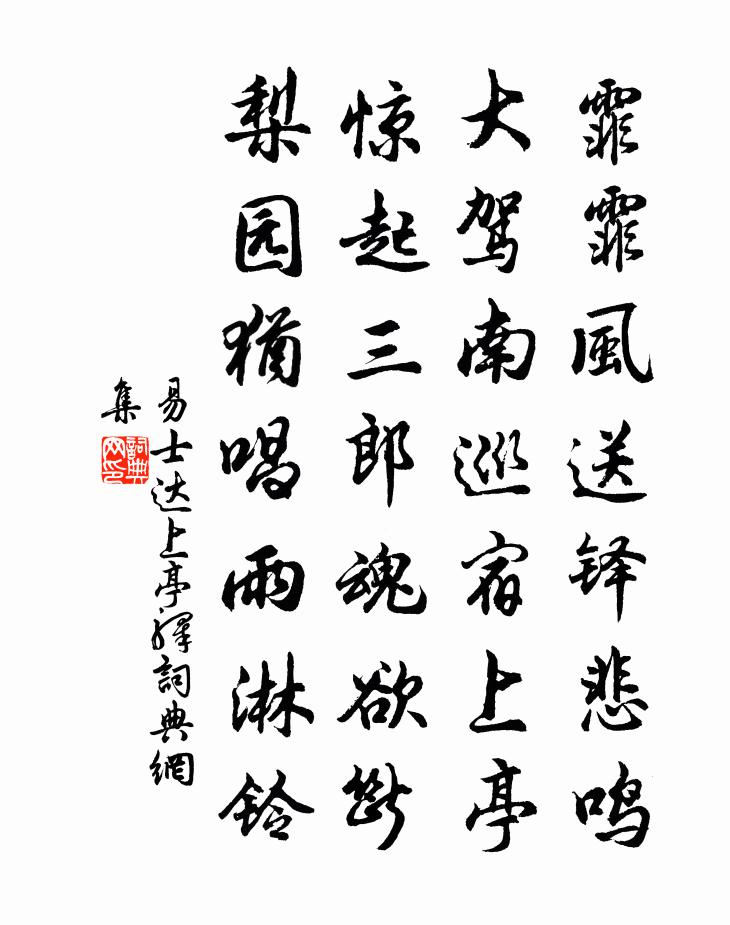 霏霏風送铎悲鸣
大驾南巡宿上亭
惊起三郎魂欲断
梨园猶唱雨淋铃
易士达上亭驛詞典網
集
詞典网印